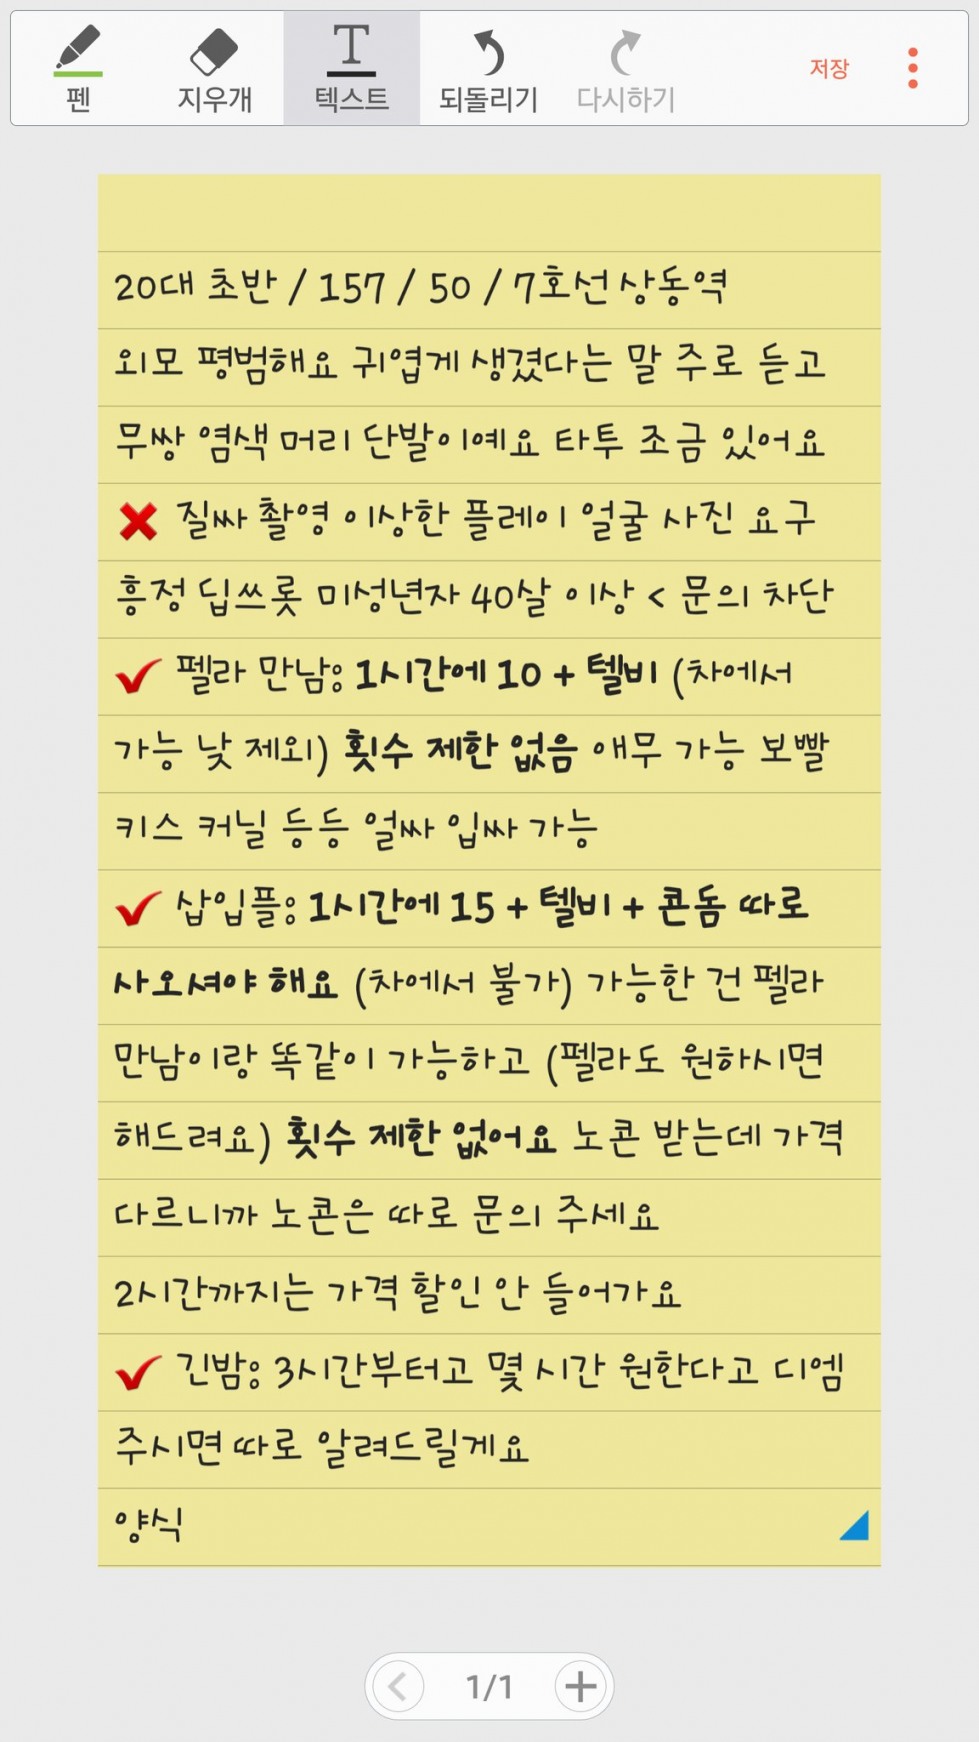 펜 지우개 텍스트 되돌리기 다시하기 저장
20대 초반 / 157 / 50 / 7호선 상동역
외모 평범해요 귀엽게 생겼다는 말 주로 듣고
무쌍 염색 머리 단발이예요 타투 조금 있어요
❌ 질싸 촬영 이상한 플레이 얼굴 사진 요구
흥정 딥쓰롯 미성년자 40살 이상 < 문의 차단
✔ 펠라 만남: 1시간에 10 + 텔비 (차에서
가능 낮 제외) 횟수 제한 없음 애무 가능 보빨
키스 커닐 등등 얼싸 입싸 가능
✔ 삽입플: 1시간에 15 + 텔비 + 콘돔 따로
사오셔야 해요 (차에서 불가) 가능한 건 펠라
만남이랑 똑같이 가능하고 (펠라도 원하시면
해드려요) 횟수 제한 없어요 노콘 받는데 가격
다르니까 노콘은 따로 문의 주세요
2시간까지는 가격 할인 안 들어가요
✔ 긴밤: 3시간부터고 몇 시간 원한다고 디엠
주시면 따로 알려드릴게요
양식
1/1